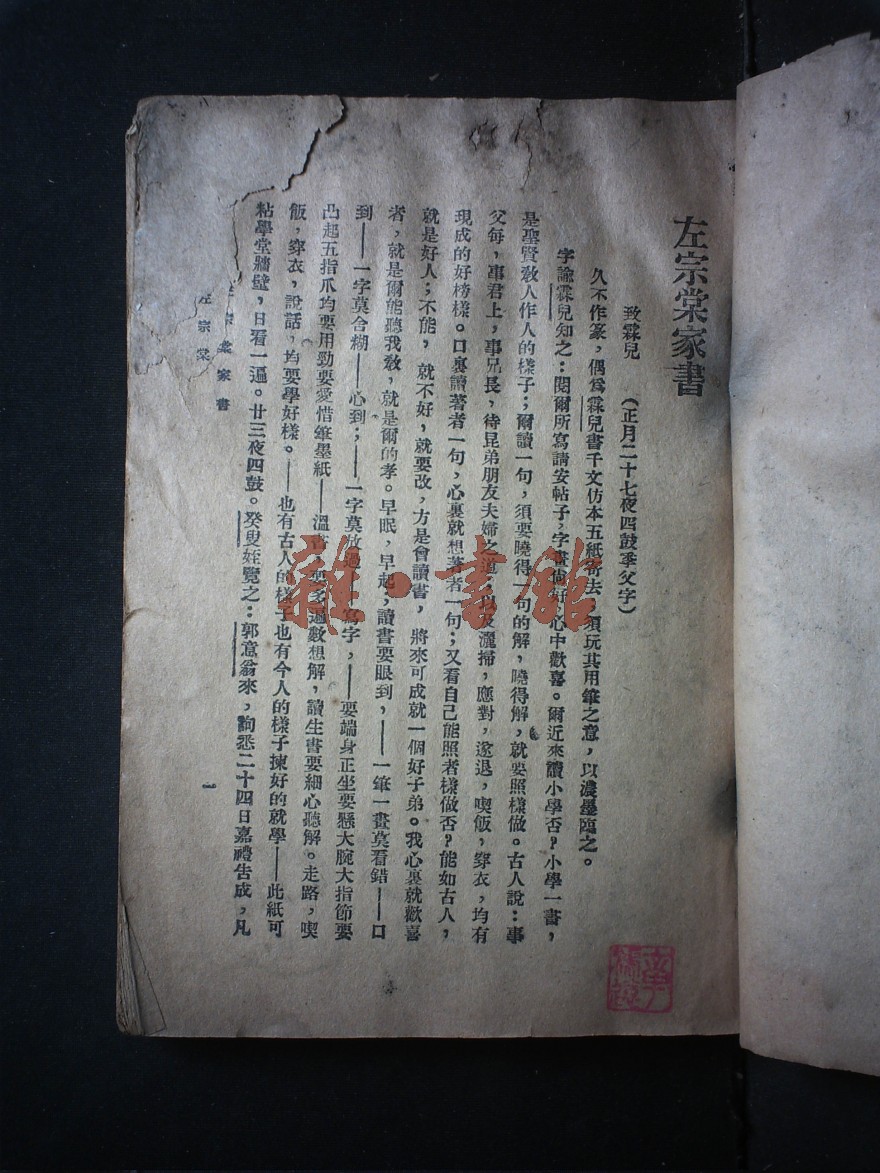 左宗棠家書
致霖兒　（正月二十七夜四鼓季父字）
久不作篆，偶爲霖兒書千文仿本五紙寄去，須玩其用筆之意，以濃墨臨之。
字諭霖兒知之：閱爾所寫請安帖子，字畫尚好，心中歡喜。爾近來讀小學否？小學一書，
是聖賢教人作人的樣子；爾讀一句，須要曉得一句的解，曉得解，就要照樣做。古人說：事
父母，事君上，事兄長，待昆弟朋友夫婦之道，以及灑掃，應對，進退，喫飯，穿衣，均有
現成的好榜樣。口裏讀著者一句，心裏就想著者一句；又看自己能照者樣做否？能如古人，
就是好人；不能，就不好，就要改，方是會讀書，將來可成就一個好子弟。我心裏就歡喜
者，就是爾能聽我教，就是爾的孝。早眠，早起，讀書要眼到，——一筆一畫莫看錯——口
到——一字莫含糊——心到；——一字莫放過——寫字，——要端身正坐要懸大腕大指節要
凸起五指爪均要用勁要愛惜筆墨紙——溫書，要多遍數想解，讀生書要細心聽解。走路，喫
飯，穿衣，說話，均要學好樣。——也有古人的樣子也有今人的樣子揀好的就學——此紙可
粘學堂牆壁，日看一遍。廿三夜四鼓。癸叟姪覽之：郭意翁來，詢悉二十四日嘉禮告成，凡
左宗棠家書
左宗棠
一
雜·書館